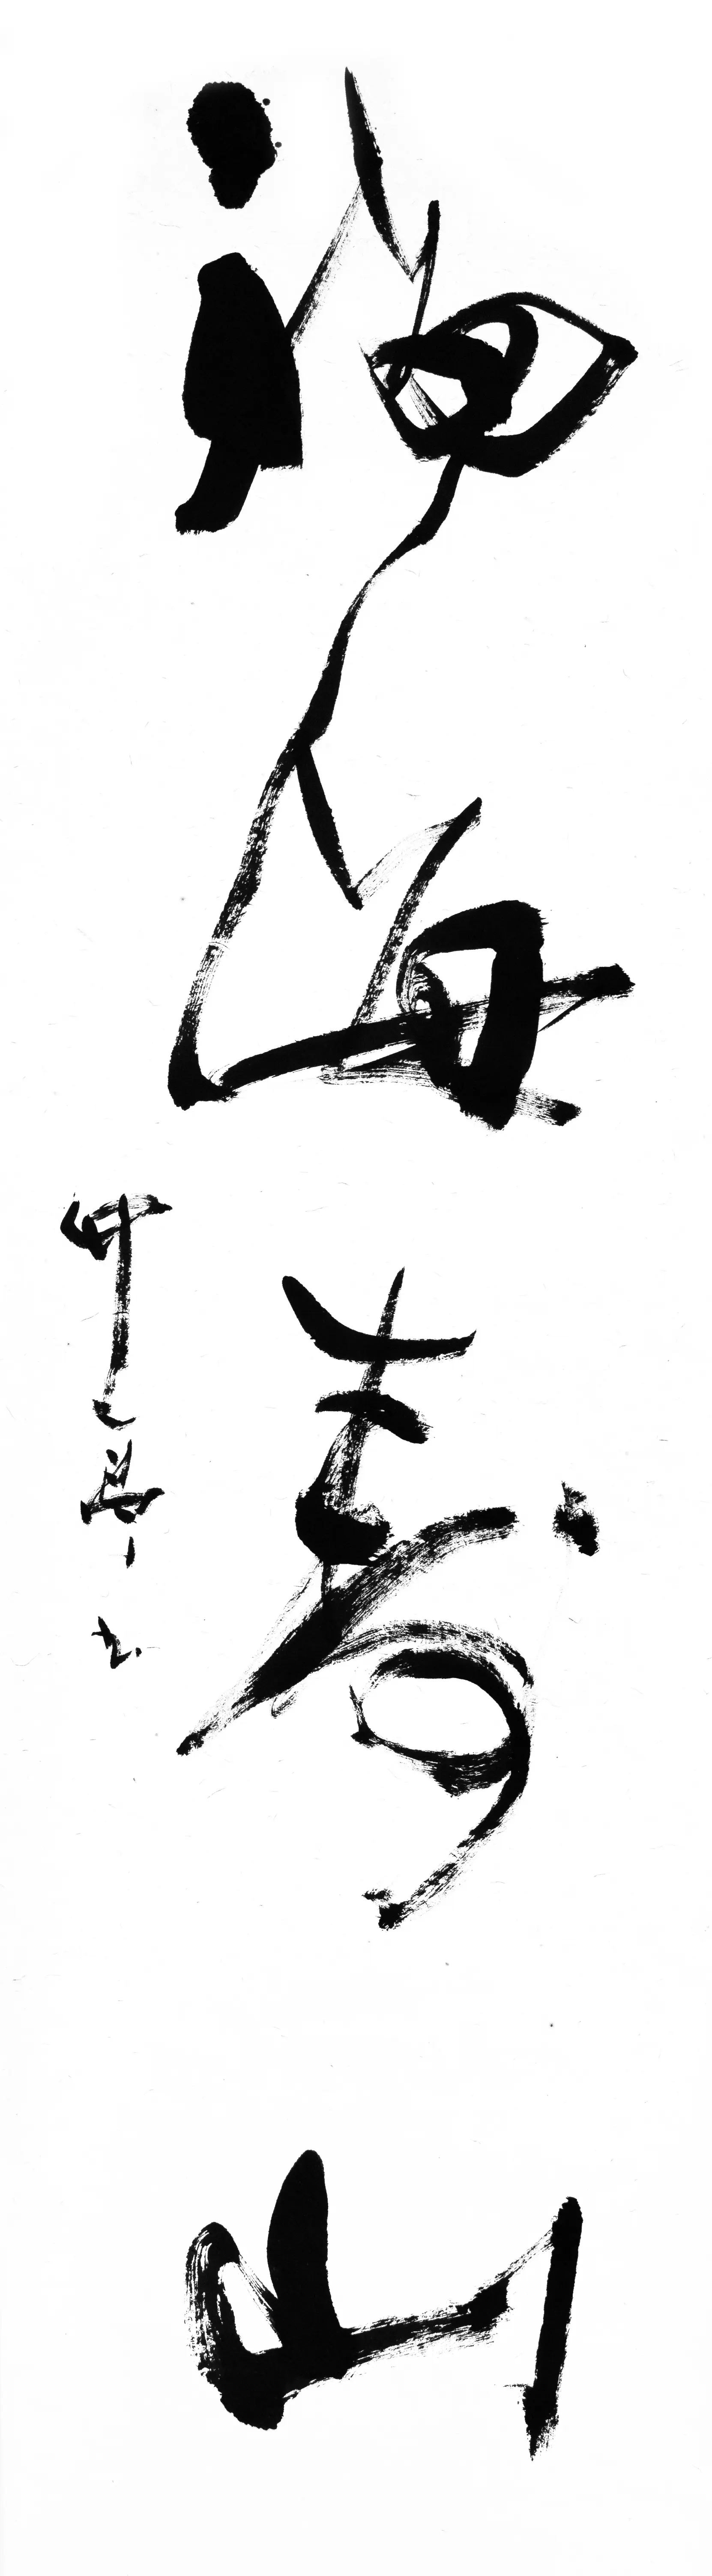 福海寿山